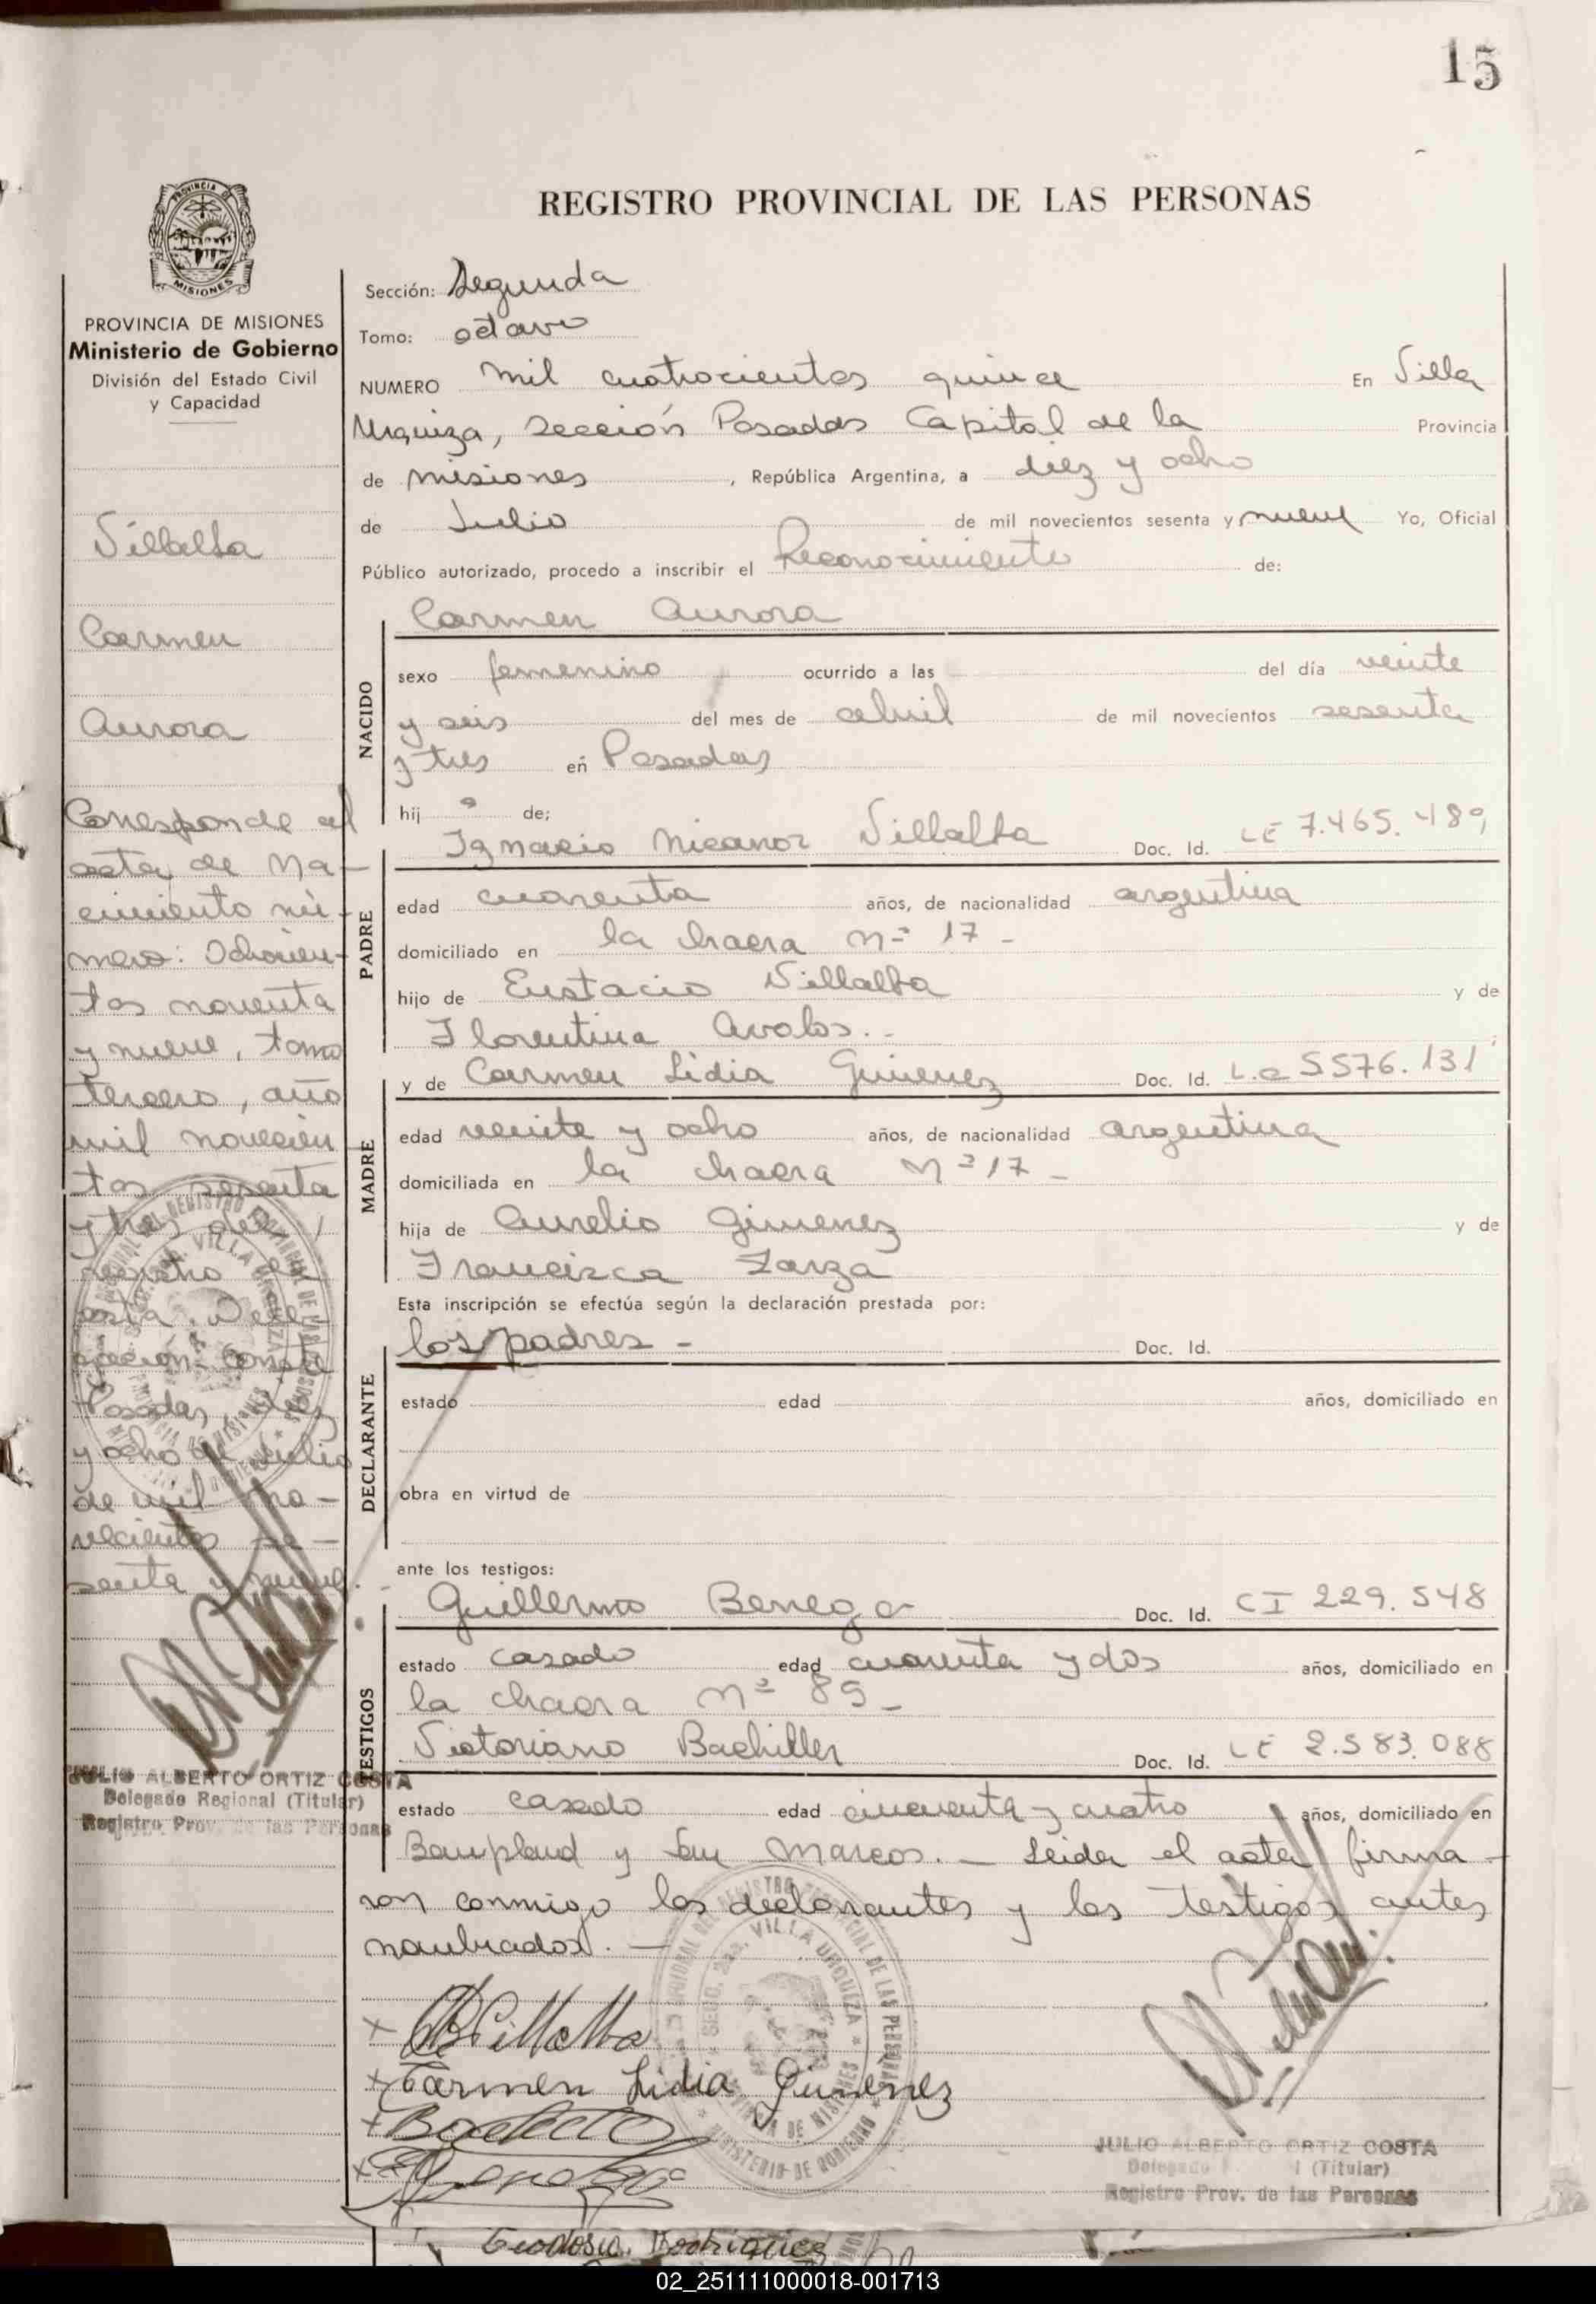 15
REGISTRO PROVINCIAL DE LAS PERSONAS
PROVINCIA DE
MISIONES
PROVINCIA DE MISIONES
Ministerio de Gobierno
División del Estado Civil
y Capacidad
Villalba
Carmen
Aurora
Corresponde al
acta de Na-
cimiento nú-
mero: Ochocien-
tos noventa
y nueve, tomo
tercero, año
mil novecien
tos sesenta
y tres del
registro de
esta Dele-
gación. Conste
Posadas, diez
y ocho de Julio
de mil no-
vecientos se-
senta y nueve.
JULIO ALBERTO ORTIZ COSTA
Delegado Regional (Titular)
Registro Prov. de las Personas
Sección: Segunda
Tomo: octavo
NUMERO mil cuatrocientos quince En Villa
Urquiza, sección Posadas Capital de la Provincia
de misiones , República Argentina, a diez y ocho
de Julio de mil novecientos sesenta y nueve Yo, Oficial
Público autorizado, procedo a inscribir el Reconocimiento de:
NACIDO
Carmen Aurora
sexo femenino ocurrido a las del día veinte
y seis del mes de abril de mil novecientos sesenta
y tres en Posadas
hij a de;
PADRE
Ignacio Nicanor Villalba Doc. Id. LE 7.465.489
edad cuarenta años, de nacionalidad argentina
domiciliado en la chacra nº 17 -
hijo de Eustacio Villalba y de
Florentina Avalos.-
MADRE
y de Carmen Lidia Gimenez Doc. Id. L.C 5576.131
edad veinte y ocho años, de nacionalidad argentina
domiciliada en la chacra nº 17 -
hija de Aurelio Gimenez y de
Francisca Zarza
Esta inscripción se efectúa según la declaración prestada por:
DECLARANTE
los padres - Doc. Id.
estado edad años, domiciliado en
obra en virtud de
ante los testigos:
TESTIGOS
Guillermo Benega Doc. Id. CI 229.548
estado casado edad cuarenta y dos años, domiciliado en
la chacra nº 89 -
Victoriano Bachiller Doc. Id. LE 2.583.088
estado casado edad cincuenta y cuatro años, domiciliado en
Bompland y San Marcos. - Leida el acta firma-
ron conmigo los declarantes y los testigos antes
nombrados. -
Villalba
Carmen Lidia Gimenez
SECC. 2da. VILLA URQUIZA
PROVINCIA DE MISIONES
MINISTERIO DE GOBIERNO
JULIO ALBERTO ORTIZ COSTA
Delegado (Titular)
Registro Prov. de las Personas
Rodriguez
02_251111000018-001713